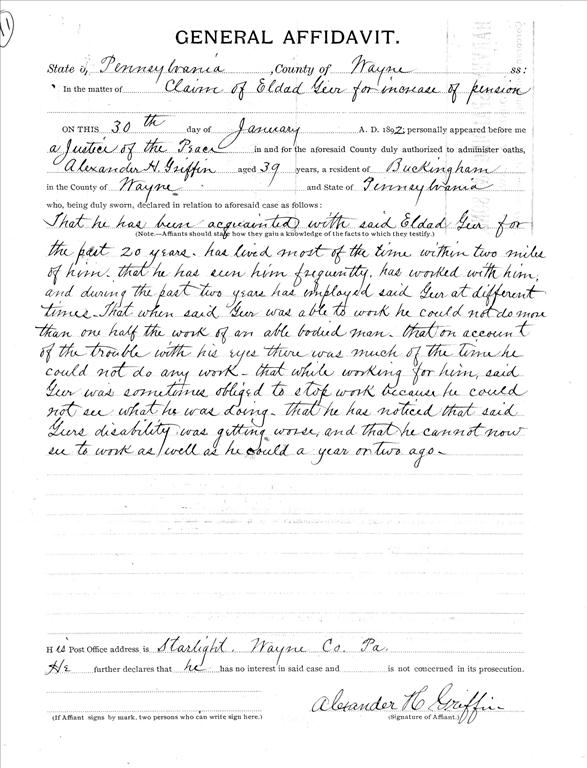 GENERAL AFFIDAVIT.
State of Pennsylvania, County of Wayne ss:
In the matter of Claim of Eldad Geer for increase of pension
ON THIS 30th day of January A. D. 1892; personally appeared before me
a Justice of the Peace in and for the aforesaid County duly authorized to administer oaths,
Alexander H. Griffin aged 39 years, a resident of Buckingham
in the County of Wayne and State of Pennsylvania
who, being duly sworn, declared in relation to aforesaid case as follows:
That he has been acquainted with said Eldad Geer for
(Note.—Affiants should state how they gain a knowledge of the facts to which they testify.)
the past 20 years. has lived most of the time within two miles
of him. that he has seen him frequently. has worked with him,
and during the past two years has employed said Geer at different
times. That when said Geer was able to work he could not do more
than one half the work of an able bodied man. that on account
of the trouble with his eyes there was much of the time he
could not do any work - that while working for him, said
Geer was sometimes obliged to stop work because he could
not see what he was doing - that he has noticed that said
Geers disability was getting worse, and that he cannot now
see to work as well as he could a year or two ago -
His Post Office address is Starlight. Wayne Co. Pa.
He further declares that he has no interest in said case and is not concerned in its prosecution.
Alexander H Griffin
(If Affiant signs by mark, two persons who can write sign here.) (Signature of Affiant.)